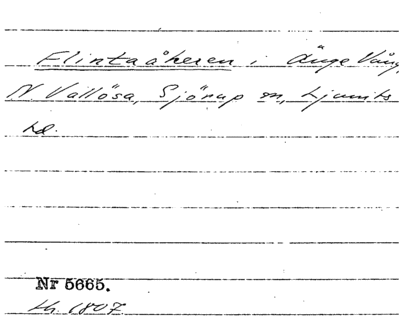 Flintaåkeren i Änge Vång,
N Vallösa, Sjörup sn, Ljunits
hd.
Nr 5665.
Lh. 1807